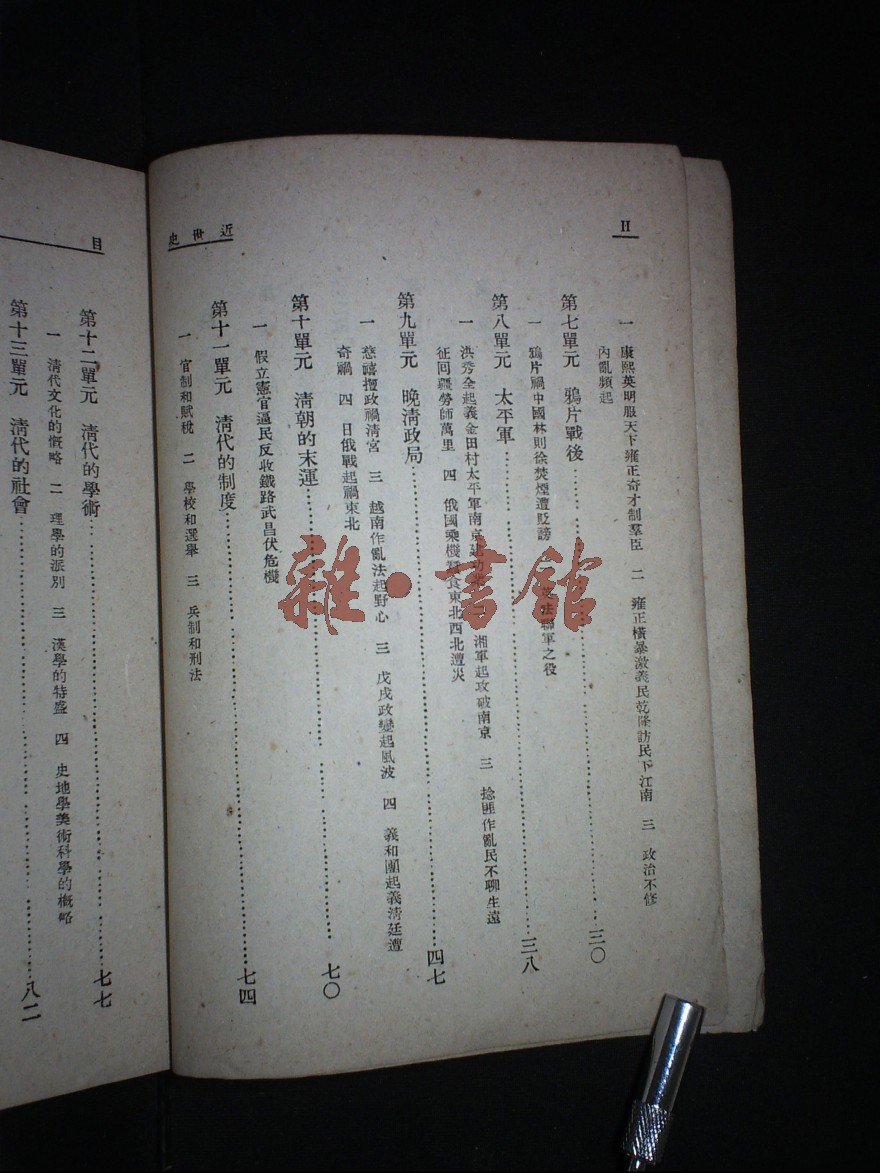 II
近世史
一 康熙英明服天下雍正奇才制羣臣 二 雍正橫暴激義民乾隆訪民下江南 三 政治不修
內亂頻起
第七單元 鴉片戰後……三〇
一 鴉片禍中國林則徐焚煙遭貶謗 聯軍之役
第八單元 太平軍……三八
一 洪秀全起義金田村太平軍南京建功 湘軍起攻破南京 三 捻匪作亂民不聊生遠
征回疆勞師萬里 四 俄國乘機蠶食東北西北遭災
第九單元 晚淸政局……四七
一 慈禧擅政禍淸宮 三 越南作亂法起野心 三 戊戌政變起風波 四 義和團起義淸廷遭
奇禍 四 日俄戰起禍東北
第十單元 淸朝的末運……七〇
一 假立憲官逼民反收鐵路武昌伏危機
第十一單元 淸代的制度……七四
一 官制和賦稅 二 學校和選舉 三 兵制和刑法
目
第十二單元 淸代的學術……七七
一 淸代文化的概略 二 理學的派別 三 漢學的特盛 四 史地學美術科學的概略
第十三單元 淸代的社會……八二
雜·書館